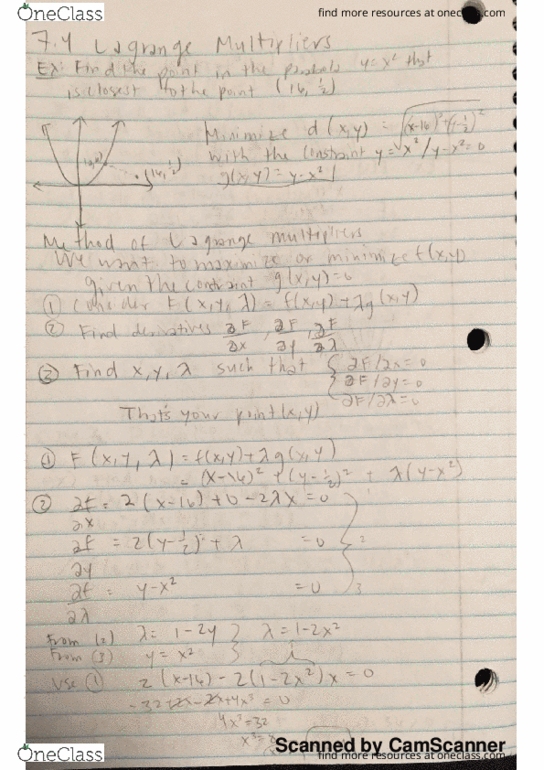 OneClass
find more resources at oneclass.com
7.4 Lagrange Multipliers
Ex: Find the point in the parabola y=x² that
is closest to the point (16, ½)
Minimize d(x,y) = √(x-16)²+(y-½)²
with the constraint y=x² / y-x²=0
(16, ½)
g(x,y)=y-x²
Method of Lagrange multipliers
We want to maximize or minimize f(x,y)
given the constraint g(x,y)=0
① Consider F(x,y,λ) = f(x,y)+λg(x,y)
② Find derivatives ∂F/∂x, ∂F/∂y, ∂F/∂λ
③ Find x,y,λ such that { ∂F/∂x=0
∂F/∂y=0
∂F/∂λ=0
That's your point (x,y)
① F(x,y,λ) = f(x,y)+λg(x,y)
= (x-16)² + (y-½)² + λ(y-x²)
② ∂f/∂x = 2(x-16)+0-2λx=0
∂f/∂y = 2(y-½)+λ =0 2
∂f/∂λ = y-x² =0 3
From (2) λ= 1-2y } λ=1-2x²
From (3) y=x²
Use ① 2(x-16)-2(1-2x²)x=0
-32+2x-2x+4x³=0
4x³=32
Scanned by CamScanner
OneClass
find more resources at oneclass.com